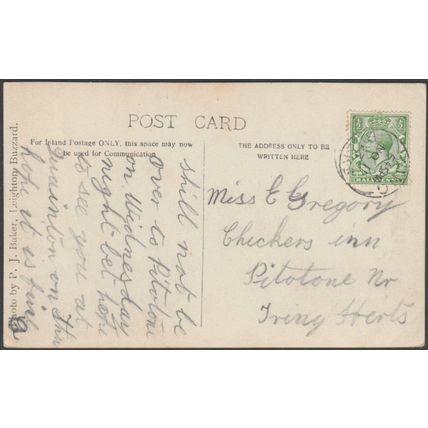 POST CARD
For Inland Postage ONLY, this space may now
be used for Communication.
THE ADDRESS ONLY TO BE
WRITTEN HERE
Photo by P. J. Baker, Leighton Buzzard.
shill not be
over to Pitotone
on Widnesday
might bet hope
to see you at
Quainton on Thur
for it is fair
Miss E Gregory
Checkers inn
Pitotone Nr
Tring Herts